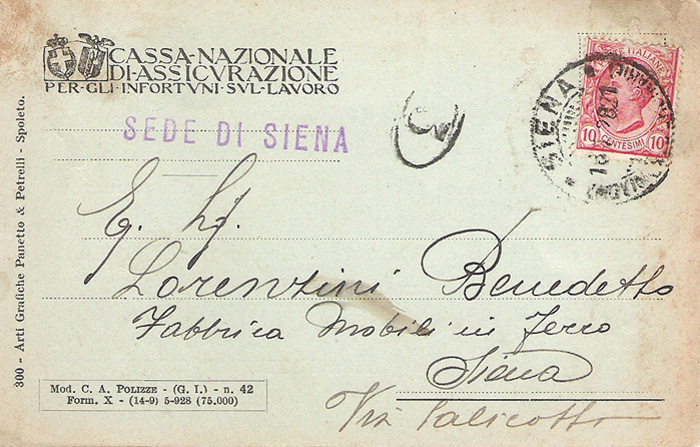 CASSA·NAZIONALE
DI·ASSICVRAZIONE
PER·GLI·INFORTVNI·SVL·LAVORO
SEDE DI SIENA
3
POSTE ITALIANE
10 CENTESIMI 10
SIENA
E. Lf.
Lorenzini Benedetto
Fabbrica Mobili in ferro
Siena
Via Salicotto
Mod. C. A. POLIZZE - (G. I.) - n. 42
Form. X - (14-9) 5-928 (75.000)
300 - Arti Grafiche Panetto & Petrelli - Spoleto.